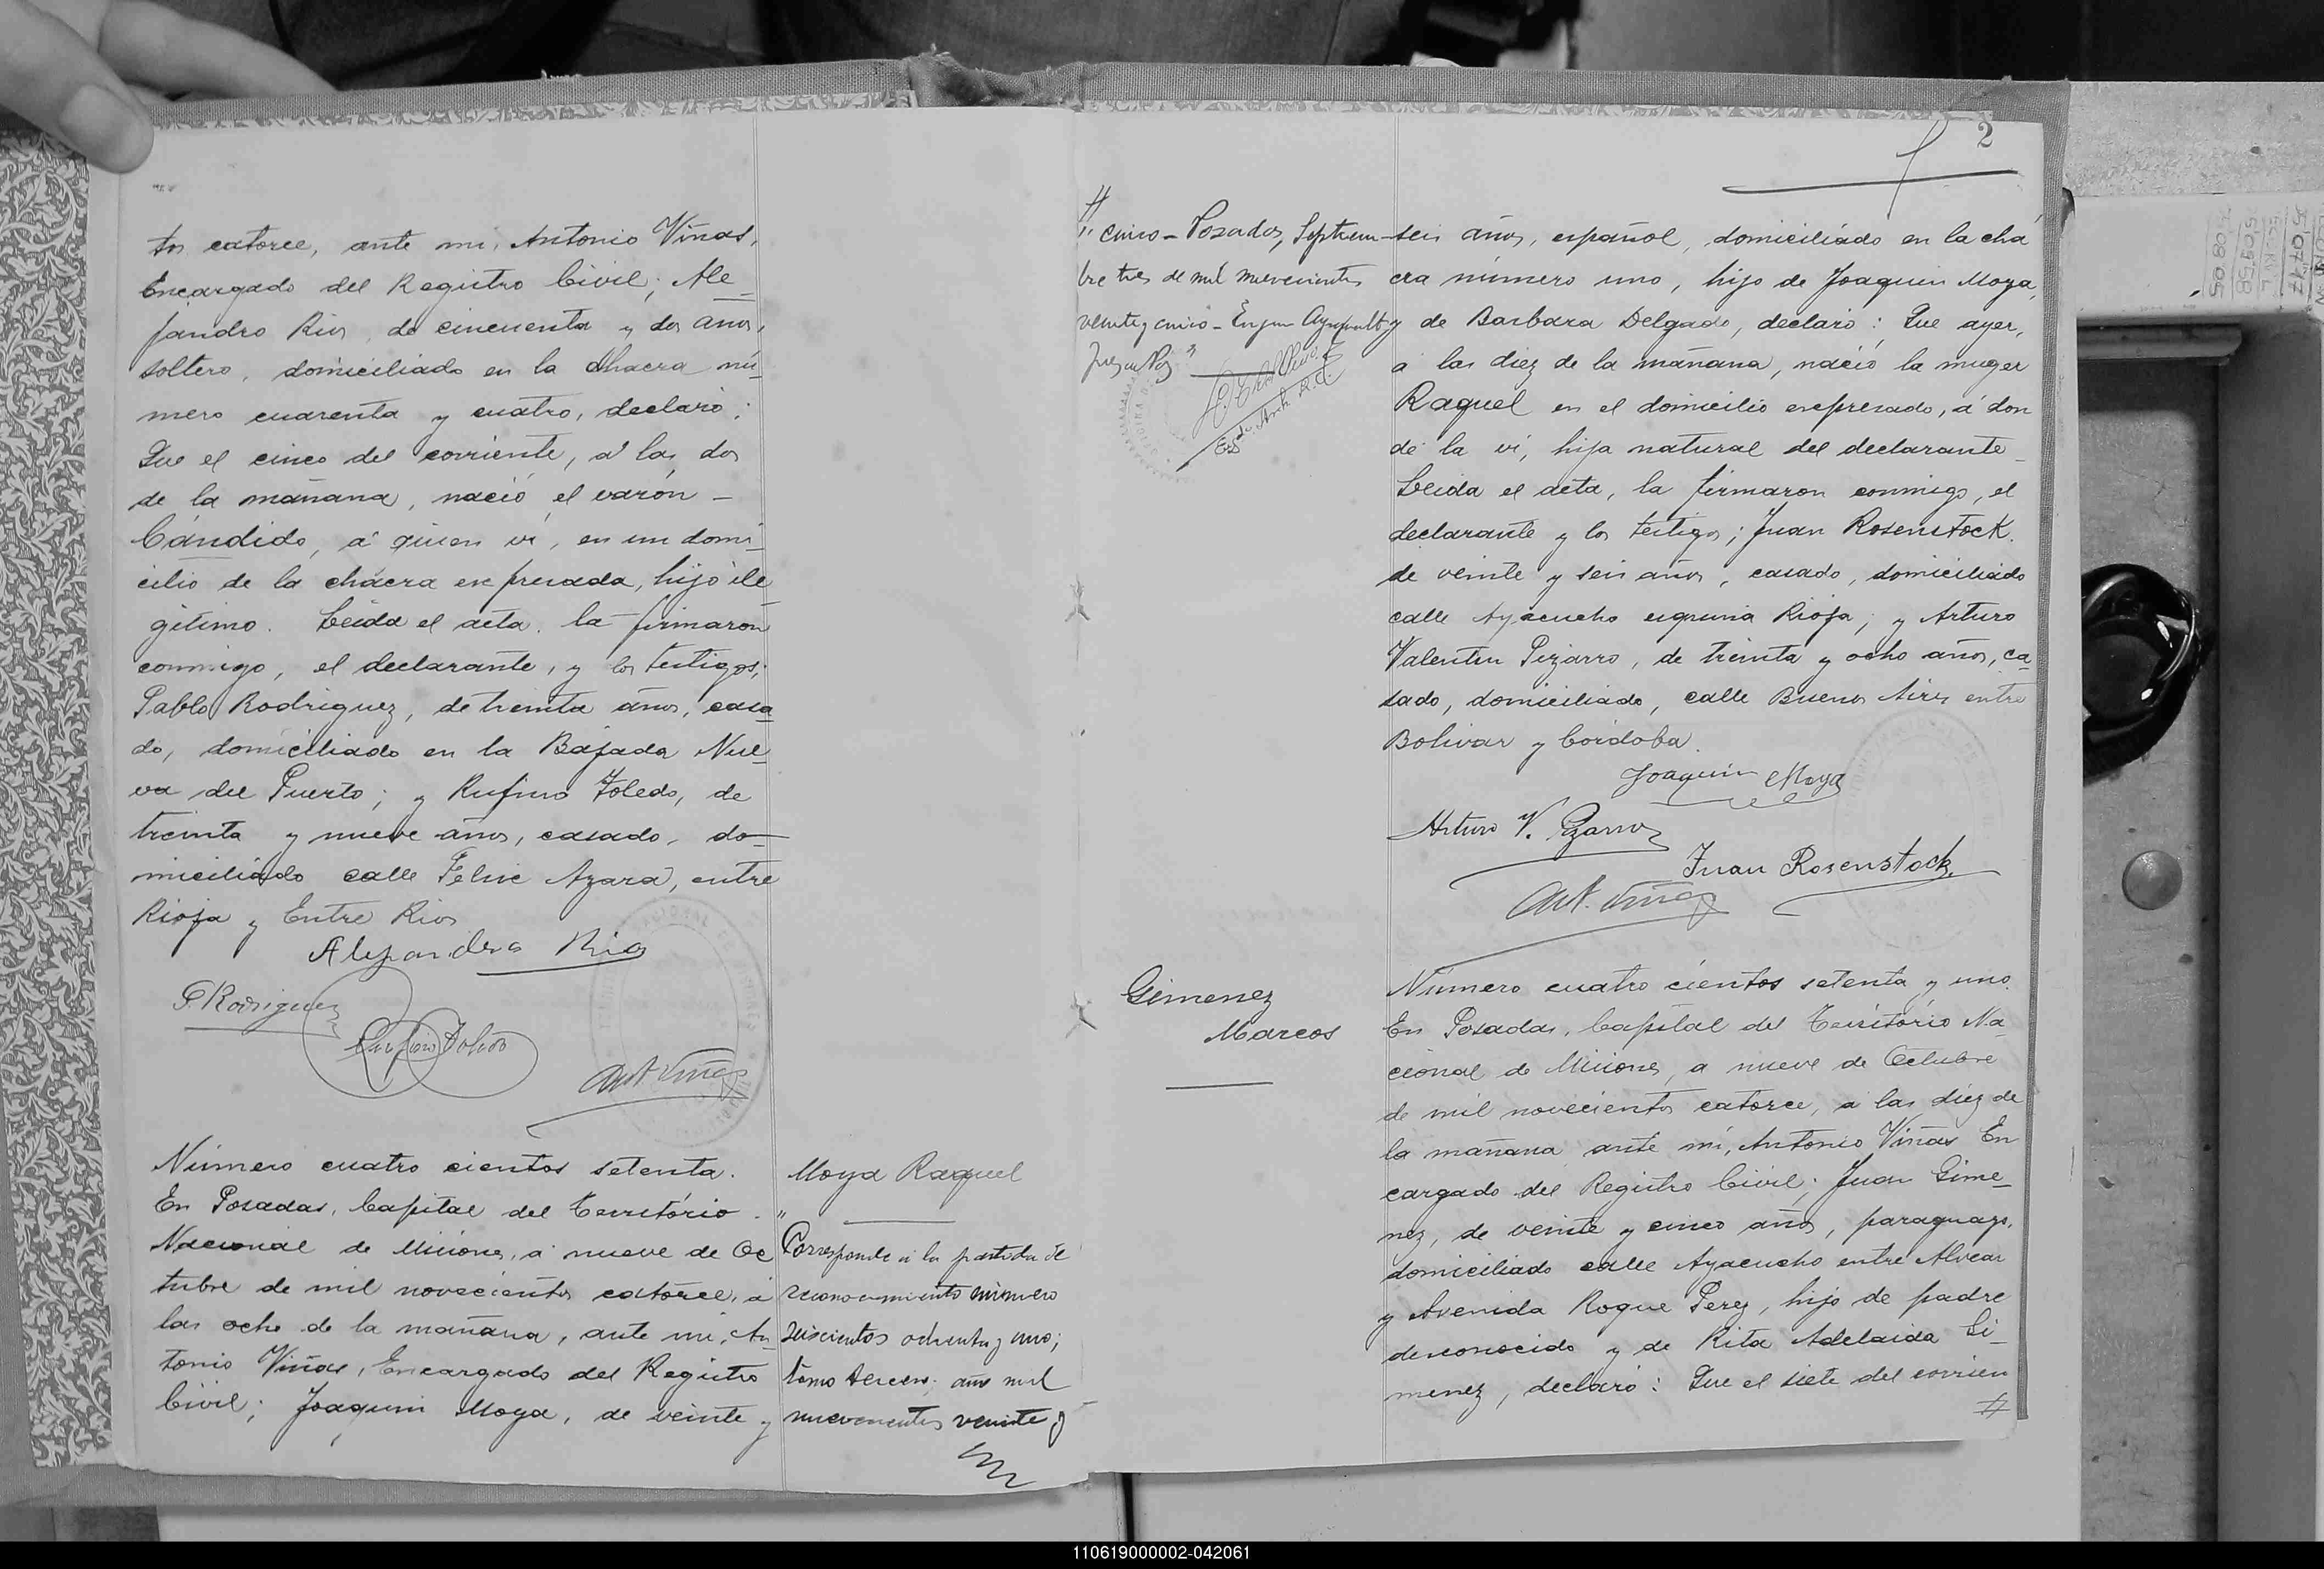 tos catorce, ante mi, Antonio Viñas,
Encargado del Registro Civil; Ale_
jandro Rios, de cincuenta y dos años,
soltero, domiciliado en la chacra nú_
mero cuarenta y cuatro, declaró:
Que el cinco del corriente, á las dos
de la mañana, nació el varón _
Cándido, á quien vi, en un domi_
cilio de la chácra expresada, hijo ile
gitimo. Leida el acta, la firmaron
conmigo, el declarante, y los testigos;
Pablo Rodriguez, de treinta años, casa
do, domiciliado en la Bajada Nue_
va del Puerto; y Rufino Toledo, de
treinta y nueve años, casado, do_
miciliado calle Felix Azara, entre
Rioja y Entre Rios
Alejandro Rios
P. Rodriguez
Rufino Toledo
Ant. Viñas
Número cuatro cientos setenta.
En Posadas, Capital del Território
Nacional de Misiones, á nueve de Oc
tubre de mil novecientos catorce, á
las ocho de la mañana, ante mi, An_
tonio Viñas, Encargado del Registro
Civil; Joaquin Moya, de veinte y
Moya Raquel
"Corresponde á la partida de
reconocimiento número
seiscientos ochenta y uno;
tomo tercero; año mil
novecientos veinte y
2
// cinco - Posadas, Septiem-
bre tres de mil novecientos
veinte y cinco -
Juez de Paz"
seis años, español, domiciliado en la chá
cra número uno, hijo de Joaquin Moya,
y de Barbara Delgado, declaró: Que ayer,
á las diez de la mañana, nació la muger
Raquel en el domicilio expresado, á don
de la vi, hija natural del declarante _
Leida el acta, la firmaron conmigo, el
declarante y los testigos; Juan Rosenstock.
de veinte y seis años, casado, domiciliado
calle Ayacucho esquina Rioja; y Arturo
Valentin Pizarro, de treinta y ocho años, ca_
sado, domiciliado, calle Buenos Aires entre
Bolivar y Córdoba.
Joaquin Moya
Arturo V. Pizarro
Juan Rosenstock.
Ant. Viñas
Gimenez
Marcos
Número cuatro cientos setenta y uno.
En Posadas, Capital del Território Na_
cional de Misiones, a nueve de Octubre
de mil novecientos catorce, a las diez de
la mañana ante mí, Antonio Viñas En
cargado del Registro Civil; Juan Gime_
nez, de veinte y cinco años, paraguayo,
domiciliado calle Ayacucho entre Alvear
y Avenida Roque Perez, hijo de padre
desconocido y de Rita Adelaida Gi_
menez, declaró: Que el siete del corrien
//
110619000002-042061